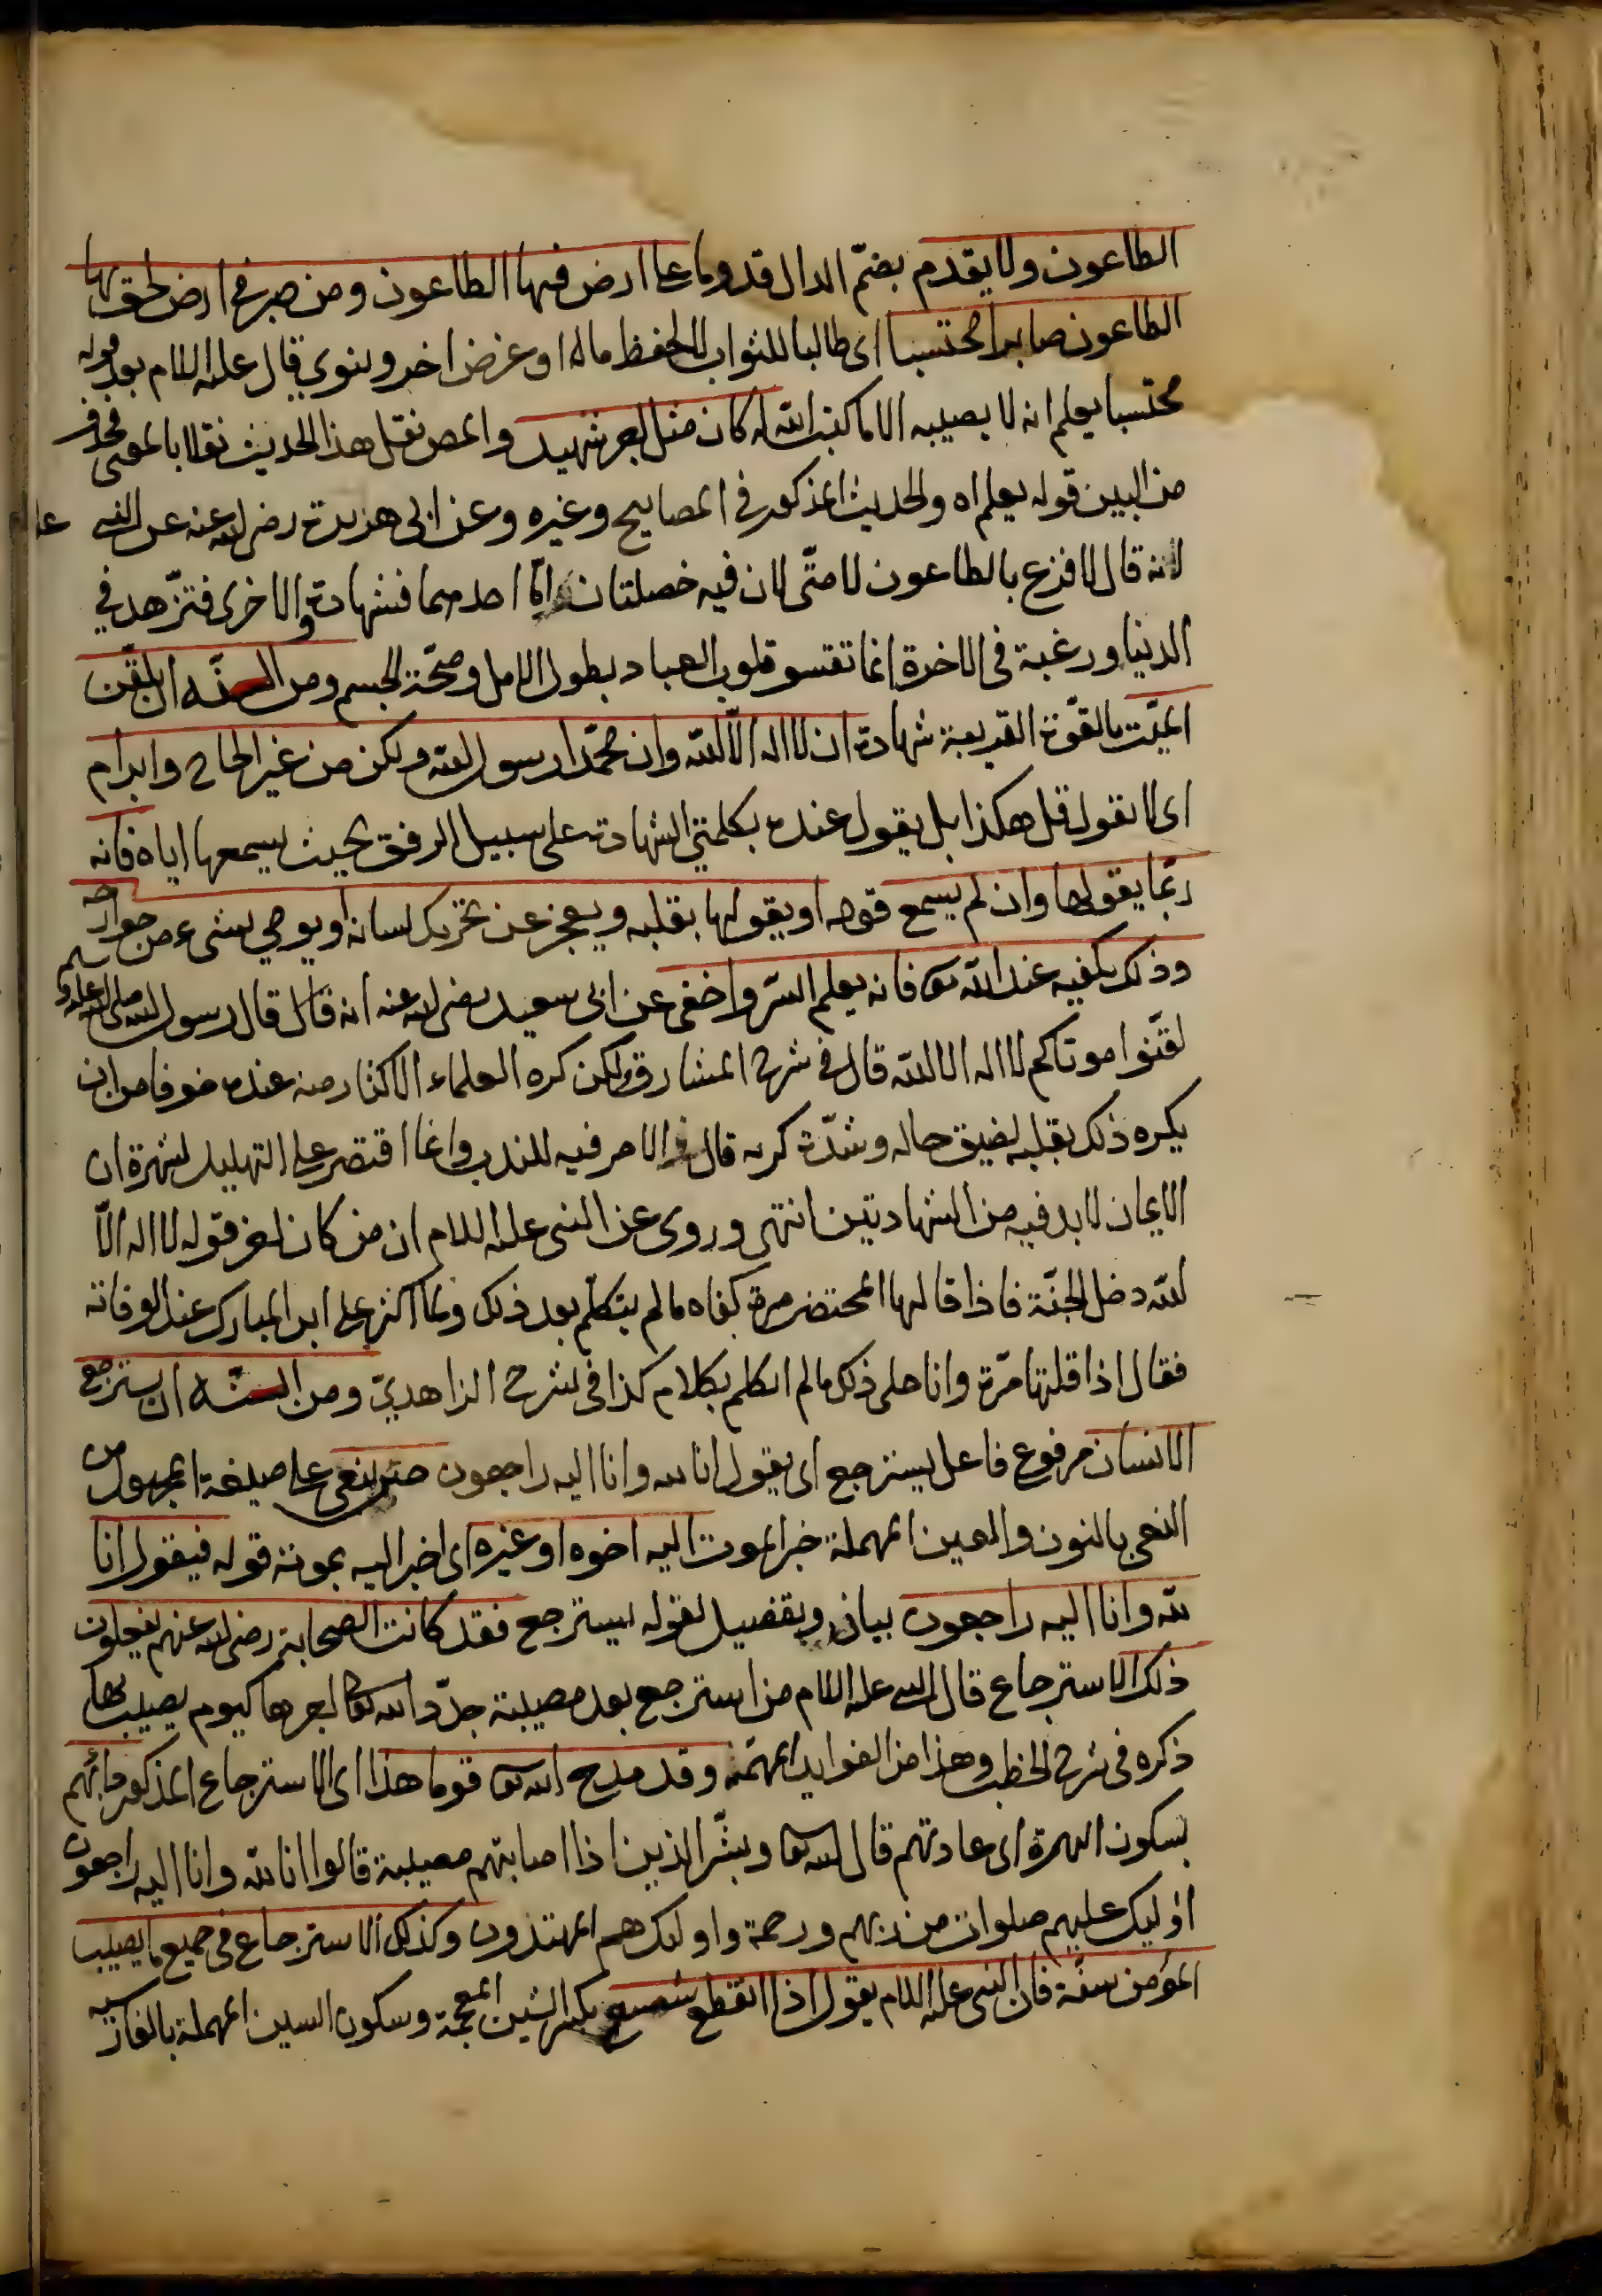 الطاعون ولا يقدم بضمّ الدال قدوما على ارض فيها الطاعون ومن صبر فى ارض لحق بها
الطاعون صابرا محتسبا اى طالبا للثواب لا لحفظ ماله او غرض اخر دنيوي قال عليه السلام بعد قوله
محتسبا يعلم انه لا يصيبه الا ما كتب الله له كان مثل اجر شهيد والمص نقل هذا الحديث نقلا بالمعنى فحذف
من البين قوله يعلم اه والحديث المذكور فى المصابيح وغيره وعن ابى هريرة رضى الله عنه عن النبى
انه قال لا فزع بالطاعون لامتى لان فيه خصلتان امّا احدهما فشهادة والاخرى فتزهد في
الدنيا ورغبة فى الاخرة انما تقسو قلوب العباد بطول الامل وصحّة الجسم ومن السنّه ان يلقّن
الميّت بالقوّة القريبة شهادة ان لا اله الّا الله وان محمّدا رسول الله ولكن من غير الحاح وابرام
اى لا يقول قل هكذا بل يقول عنده بكلمتي الشهادة على سبيل الرفق بحيث يسمعها اياه فانه
ربّما يقولها وان لم يسمع قوله او يقولها بقلبه ويعجز عن تحريك لسانه او يوحي بشىء من جوارحه
وذلك يكفيه عند الله تعا فانه يعلم السّر واخفى عن ابى سعيد رضى الله عنه انه قال قال رسول الله صلى الله عليه وسلم
لقّنوا موتاكم لا اله الا الله قال فى شرح المشارق ولكن كره العلماء الاكثار منه عنده خوفا من ان
يكره ذلك بقلبه لضيق حاله وشدّة كربه قال والامر فيه للندب وانما اقتصر على التهليل لشهرة ان
الايمان لا بد فيه من الشهادتين انتهى وروى عن النبى عليه السلام ان من كان اخر قوله لا اله الّا
الله دخل الجنّة فاذا قالها المحتضر مرة كفاه ما لم يتكلّم بعد ذلك ولما اكثر على ابن المبارك عند الوفاته
فقال اذا قلتها مرّة وانا على ذلك ما لم اتكلم بكلام كذا فى شرح الزاهديّ ومن السنّه ان يسترجع
الانسان مرفوع فاعل يسترجع اى يقول انا لله وانا اليه راجعون حتى ينعى على صيغة المجهول من
النعى بالنون والعين المهملة خبر الموت اليه اخوه او غيره اى اخبر اليه بموته قوله فيقول انا
لله وانا اليه راجعون بيان وتفصيل لقوله يسترجع فقد كانت الصحابة رضى الله عنهم يفعلون
ذلك الاسترجاع قال النبى عليه السلام من استرجع بعد مصيبة جدّد الله تعا اجرها كيوم يصيب بها
ذكره فى شرح الخطب وهذا من الفوايد المهمّة وقد مدح الله تعا قوما هذا اى الاسترجاع المذكور دأبهم
بسكون الهمزة اى عادتهم قال الله تعا وبشّر الذين اذا اصابتهم مصيبة قالوا انا لله وانا اليه راجعون
اوليك عليهم صلوات من ربهم ورحمة واوليك هم المهتدون وكذلك الاسترجاع فى جميع ما يصيب
المؤمن سنّة فان النبى عليه السلام يقول اذا انقطع شسع بكسر الشين المعجمة وسكون السين المهملة بالفارسيه